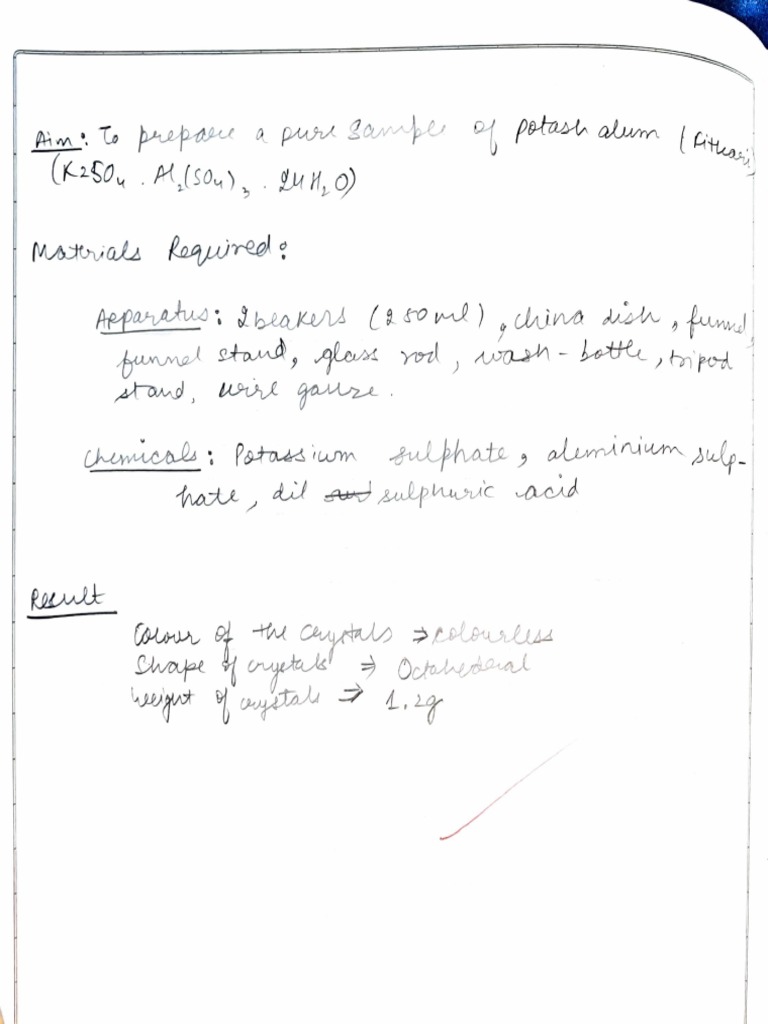 Aim: To prepare a pure sample of potash alum (Fitkari)
(K2SO4 . Al2(SO4)3 . 24H2O)
Materials Required:
Apparatus: 2 beakers (250ml), china dish, funnel,
funnel stand, glass rod, wash-bottle, tripod
stand, wire gauze.
Chemicals: Potassium sulphate, aluminium sulp-
hate, dil sulphuric acid
Result
Colour of the crystals ⇒ colourless
Shape of crystals ⇒ Octahederal
Weight of crystals ⇒ 1.2g